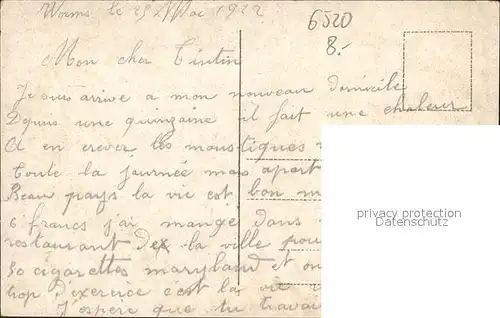 Worms le 25 Mai 1922
6520
8.-
Mon cher Tintin
Je suis arrivé a mon nouveau domicile
Depuis une quinzaine il fait une chaleur
A en crever les moustiques
toute la journée mais apart
Beau pays la vie est bon m
6 francs j'ai mangé dans
restaurant de la ville pou
50 cigarettes maryland et on
trop d'exercice c'est la vie
J'espère que tu travai
privacy protection
Datenschutz